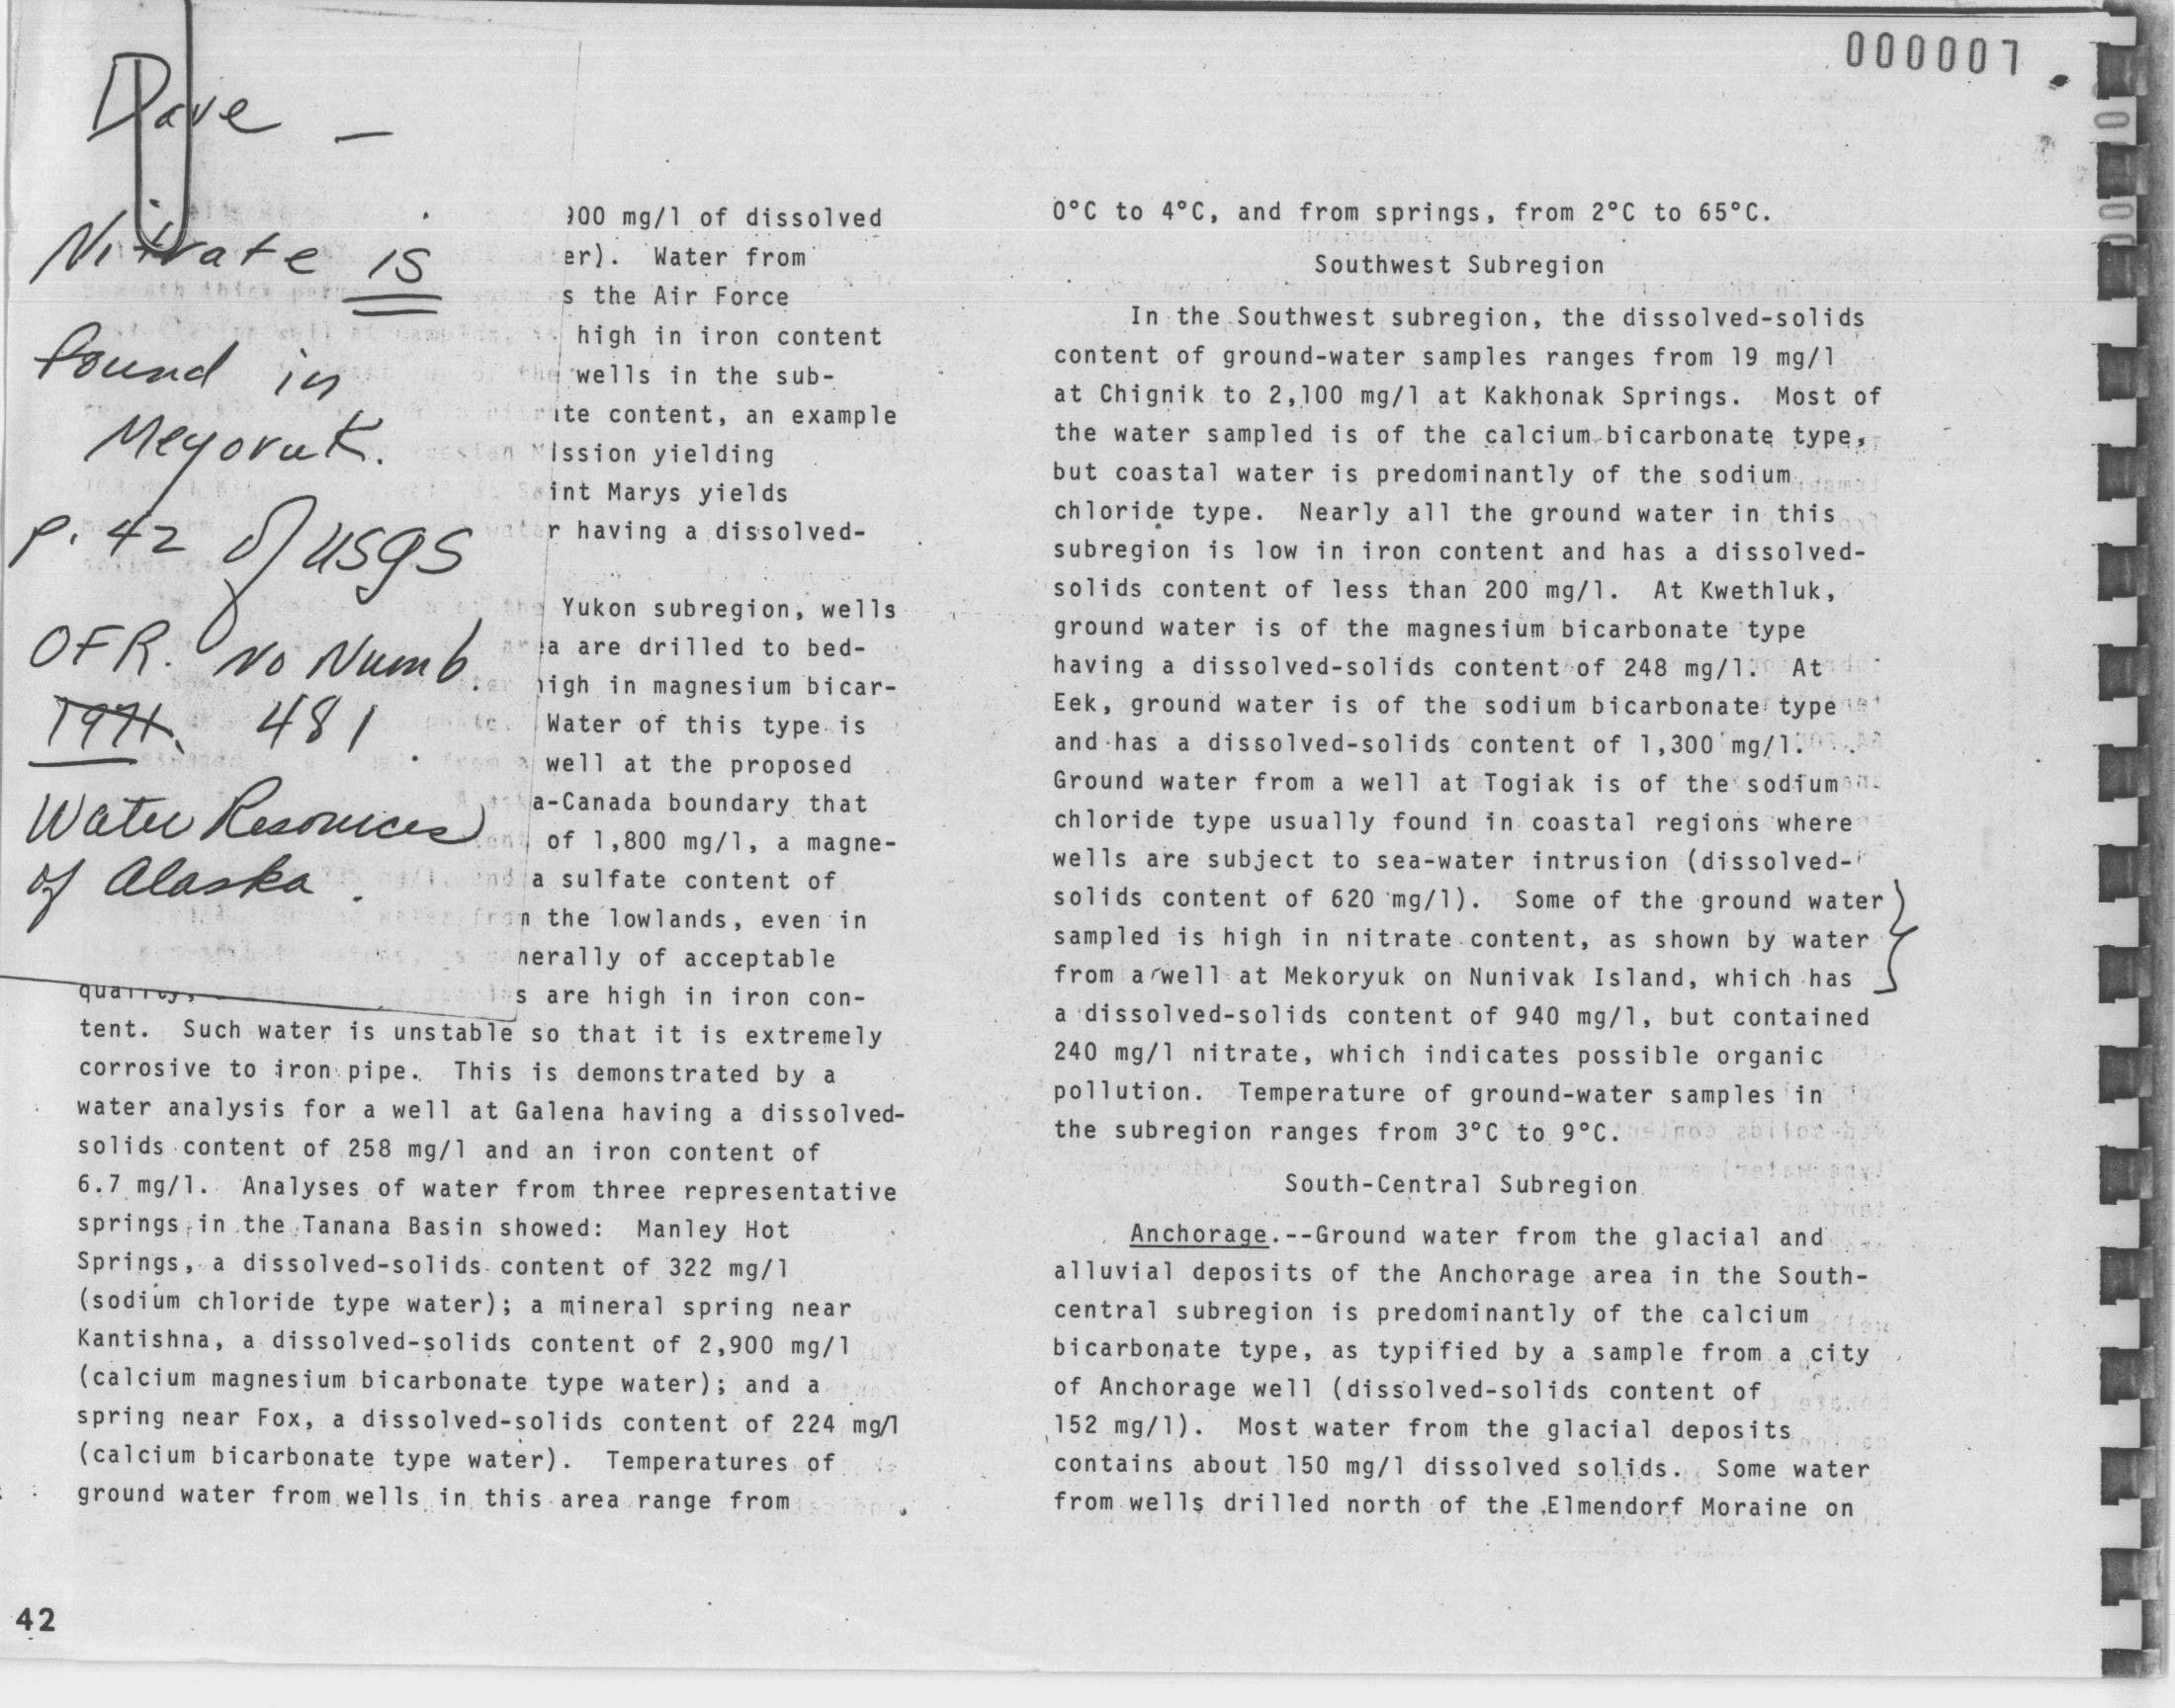 000007
Dave —
Nitrate is
found in
Meyoruk.
p. 42 of USGS
OFR. No Numb.
1971. 481
Water Resources
of Alaska.
900 mg/l of dissolved
er). Water from
s the Air Force
high in iron content
wells in the sub-
te content, an example
ission yielding
int Marys yields
r having a dissolved-
Yukon subregion, wells
a are drilled to bed-
igh in magnesium bicar-
Water of this type is
well at the proposed
a-Canada boundary that
of 1,800 mg/l, a magne-
a sulfate content of
n the lowlands, even in
nerally of acceptable
quality, s are high in iron con-
tent. Such water is unstable so that it is extremely
corrosive to iron pipe. This is demonstrated by a
water analysis for a well at Galena having a dissolved-
solids content of 258 mg/l and an iron content of
6.7 mg/l. Analyses of water from three representative
springs in the Tanana Basin showed: Manley Hot
Springs, a dissolved-solids content of 322 mg/l
(sodium chloride type water); a mineral spring near
Kantishna, a dissolved-solids content of 2,900 mg/l
(calcium magnesium bicarbonate type water); and a
spring near Fox, a dissolved-solids content of 224 mg/l
(calcium bicarbonate type water). Temperatures of
ground water from wells in this area range from
0°C to 4°C, and from springs, from 2°C to 65°C.
Southwest Subregion
In the Southwest subregion, the dissolved-solids
content of ground-water samples ranges from 19 mg/l
at Chignik to 2,100 mg/l at Kakhonak Springs. Most of
the water sampled is of the calcium bicarbonate type,
but coastal water is predominantly of the sodium
chloride type. Nearly all the ground water in this
subregion is low in iron content and has a dissolved-
solids content of less than 200 mg/l. At Kwethluk,
ground water is of the magnesium bicarbonate type
having a dissolved-solids content of 248 mg/l. At
Eek, ground water is of the sodium bicarbonate type
and has a dissolved-solids content of 1,300 mg/l.
Ground water from a well at Togiak is of the sodium
chloride type usually found in coastal regions where
wells are subject to sea-water intrusion (dissolved-
solids content of 620 mg/l). Some of the ground water
sampled is high in nitrate content, as shown by water
from a well at Mekoryuk on Nunivak Island, which has
a dissolved-solids content of 940 mg/l, but contained
240 mg/l nitrate, which indicates possible organic
pollution. Temperature of ground-water samples in
the subregion ranges from 3°C to 9°C.
South-Central Subregion
Anchorage.--Ground water from the glacial and
alluvial deposits of the Anchorage area in the South-
central subregion is predominantly of the calcium
bicarbonate type, as typified by a sample from a city
of Anchorage well (dissolved-solids content of
152 mg/l). Most water from the glacial deposits
contains about 150 mg/l dissolved solids. Some water
from wells drilled north of the Elmendorf Moraine on
42